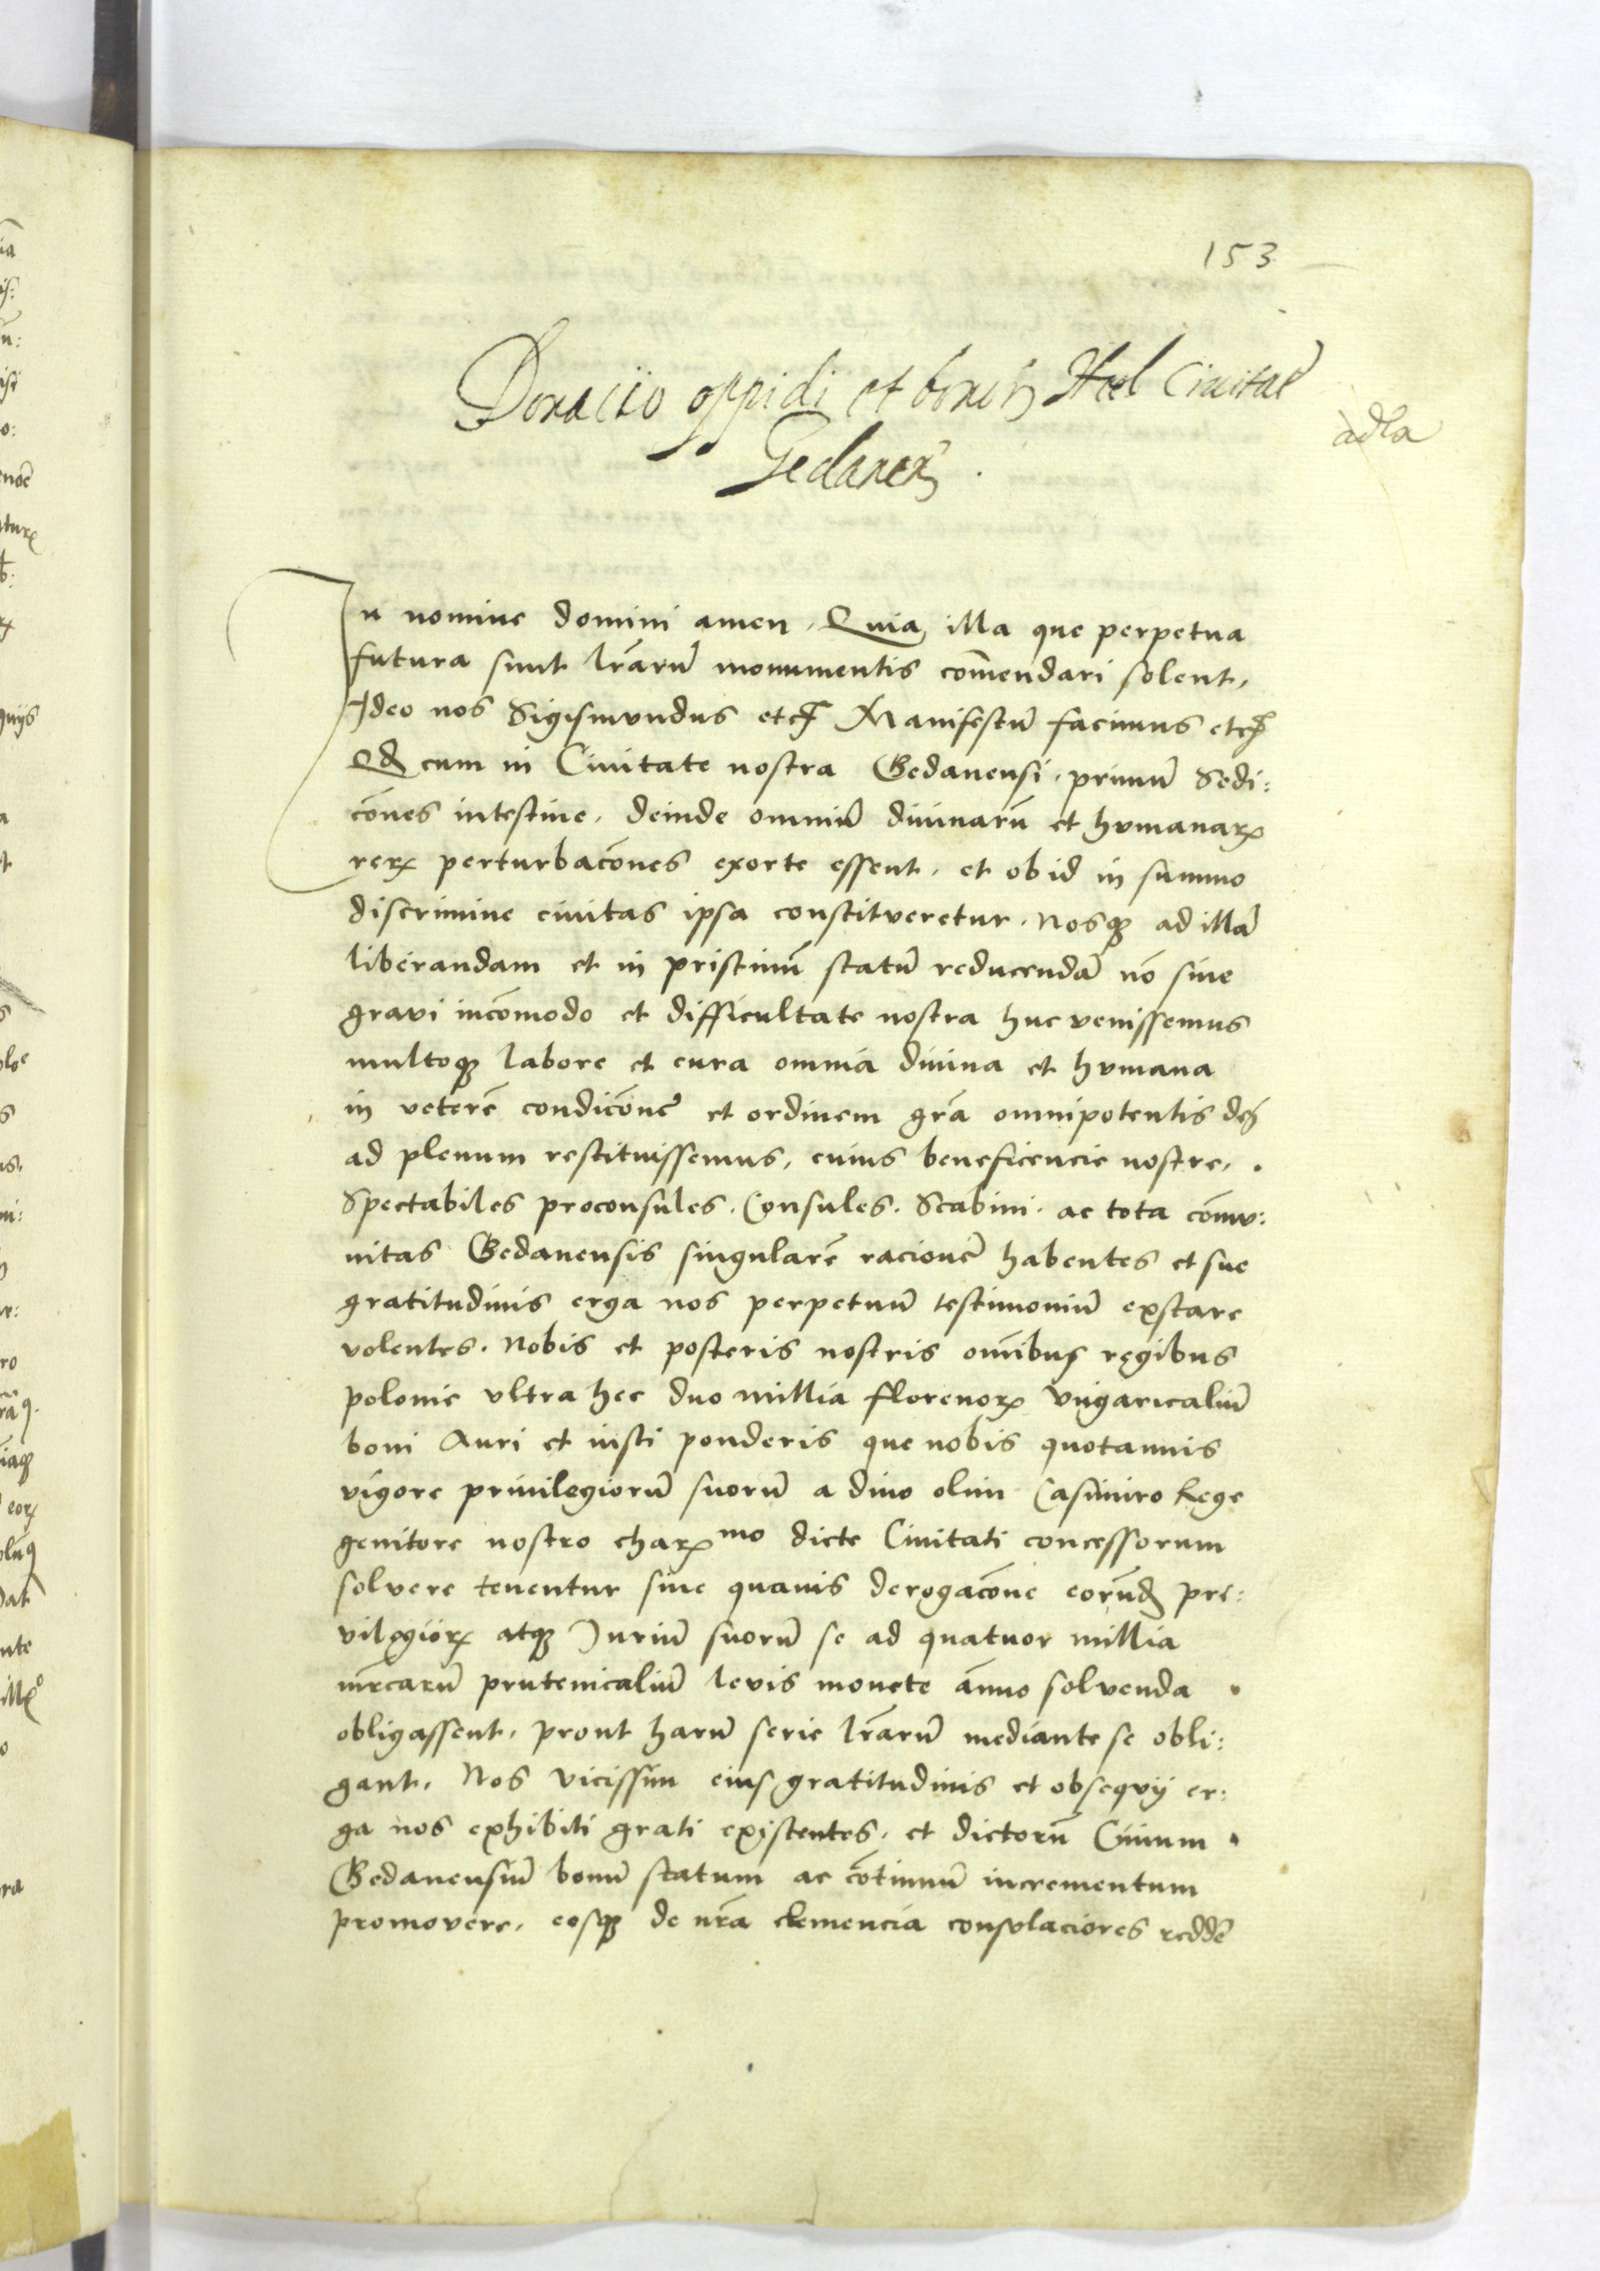 153
Donaciio oppidi et bonor Hel Ciuitat
Gedanen
adla
In nomine domini amen, Quia illa que perpetua
futura sunt lrarum monumentis comendari solent,
Ideo nos Sigismundus etc Manifestum facimus etc
Qd cum in Ciuitate nostra Gedanensi, primum Sedi:
cones intestine, deinde omnium diuinarum et humanarꝝ
rerꝝ perturbacones exorte essent, et ob id in summo
discrimine ciuitas ipsa constitueretur, Nosqꝫ ad illam
liberandam et in pristinum statum reducendam non sine
graui incomodo et difficultate nostra huc venissemus
multoqꝫ labore et cura omnia diuina et humana
in veterem condiconem et ordinem gra omnipotentis dei
ad plenum restituissemus, cuius beneficencie nostre,
Spectabiles proconsules, Consules, Scabini, ac tota comu:
nitas Gedanensis singularem racionem habentes et sue
gratitudinis erga nos perpetuum testimonium exstare
volentes, Nobis et posteris nostris omnibus regibus
polonie vltra hec duo millia florenorꝝ vngaricalium
boni Auri et iusti ponderis que nobis quotannis
vigore priuilegiorum suorum a diuo olim Casimiro Rege
genitore nostro charꝝmo dicte Ciuitati concessorum
soluere tenentur sine quauis derogacone eorund pre:
vilegiorꝝ atqꝫ Jurium suorum se ad quatuor millia
mrcarum prutenicalium leuis monete anno soluenda
obligassent, prout harum serie lrarum mediante se obli:
gant, Nos vicissim eius gratitudinis et obsequij er:
ga nos exhibiti grati existentes, et dictorum Ciuium
Gedanensium bonum statum ac continuum incrementum
promouere, eosqꝫ de nra clemencia consolaciores redde